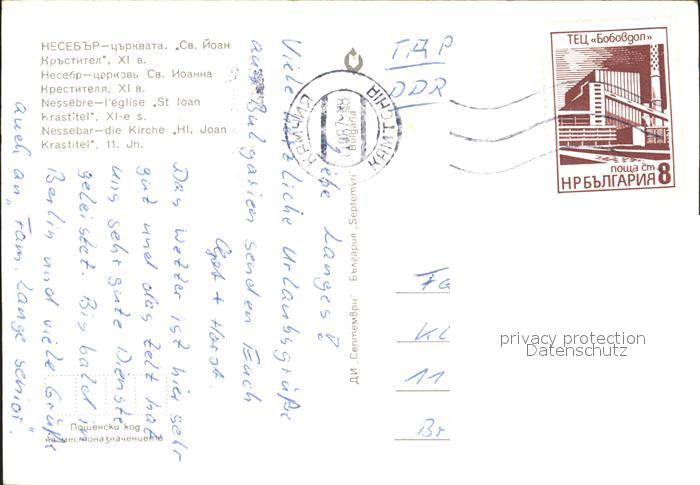 НЕСЕБЪР—църквата. „Св. Йоан
Кръстител", XI в.
Несебр—церковь Св. Иоанна
Крестителя, XI в.
Nessèbre—l'église "St Ioan
Krastitel", XI-e s.
Nessebar—die Kirche "Hl. Joan
Krastitel", 11. Jh.
Liebe Langes!
Viele herzliche Urlaubsgrüße
aus Bulgarien senden Euch
+ Horst.
Das Wetter ist hier sehr
gut und das Zelt hat
uns sehr gute Dienste
geleistet. Bis bald in
Berlin und viele Grüße
auch an „Fam. Lange senior".
Пощенски код
на местоназначението
ДИ „Септември" България „Septemvri" Bulgaria
КАМЧИЯ
KAMTCHIA
ГДР
DDR
ТЕЦ «Бобовдол»
поща ст. 8
НРБЪЛГАРИЯ
Fa
Kl
11
Br
privacy protection
Datenschutz